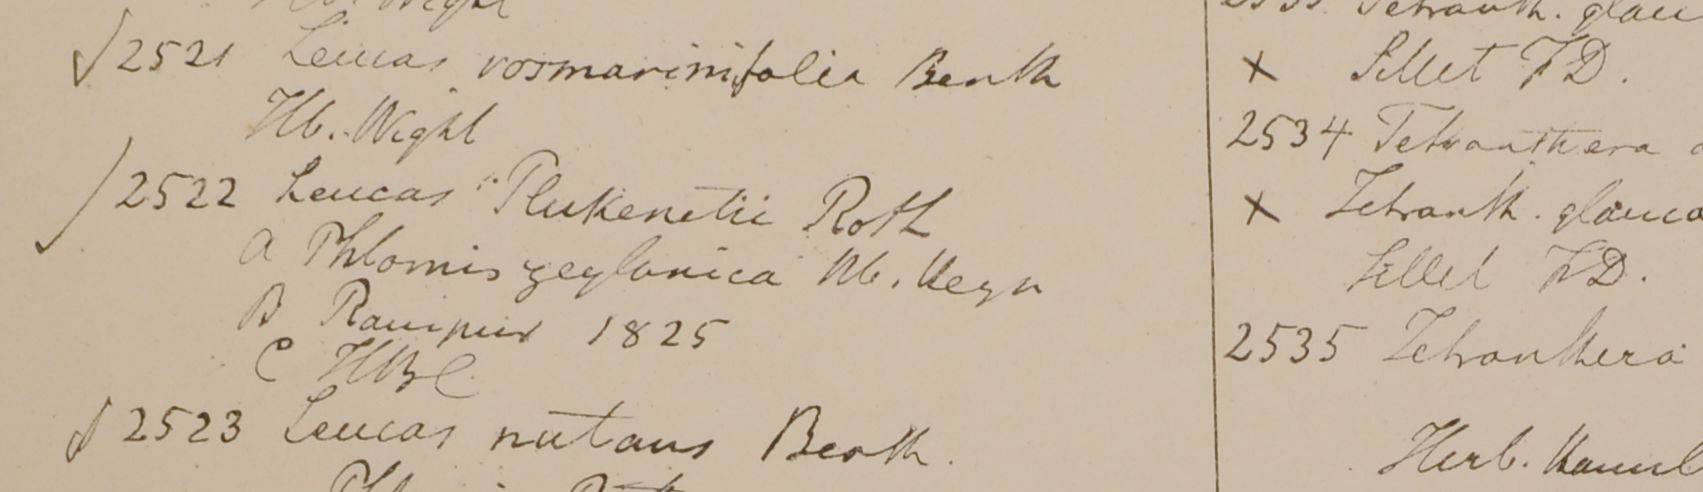 Hb. Wight
2521 Leucas rosmarinifolia Benth
Hb. Wight
2522 Leucas Plukenetii Roth
a Phlomis zeylonica Hb. Heyn
B Rampur 1825
C HBC
2523 Leucas nutans Benth.
Tetranth. glauc
x Sillet FD.
2534 Tetranthera
x Tetranth. glauca
Sillet FD.
2535 Tetranthera
Herb.